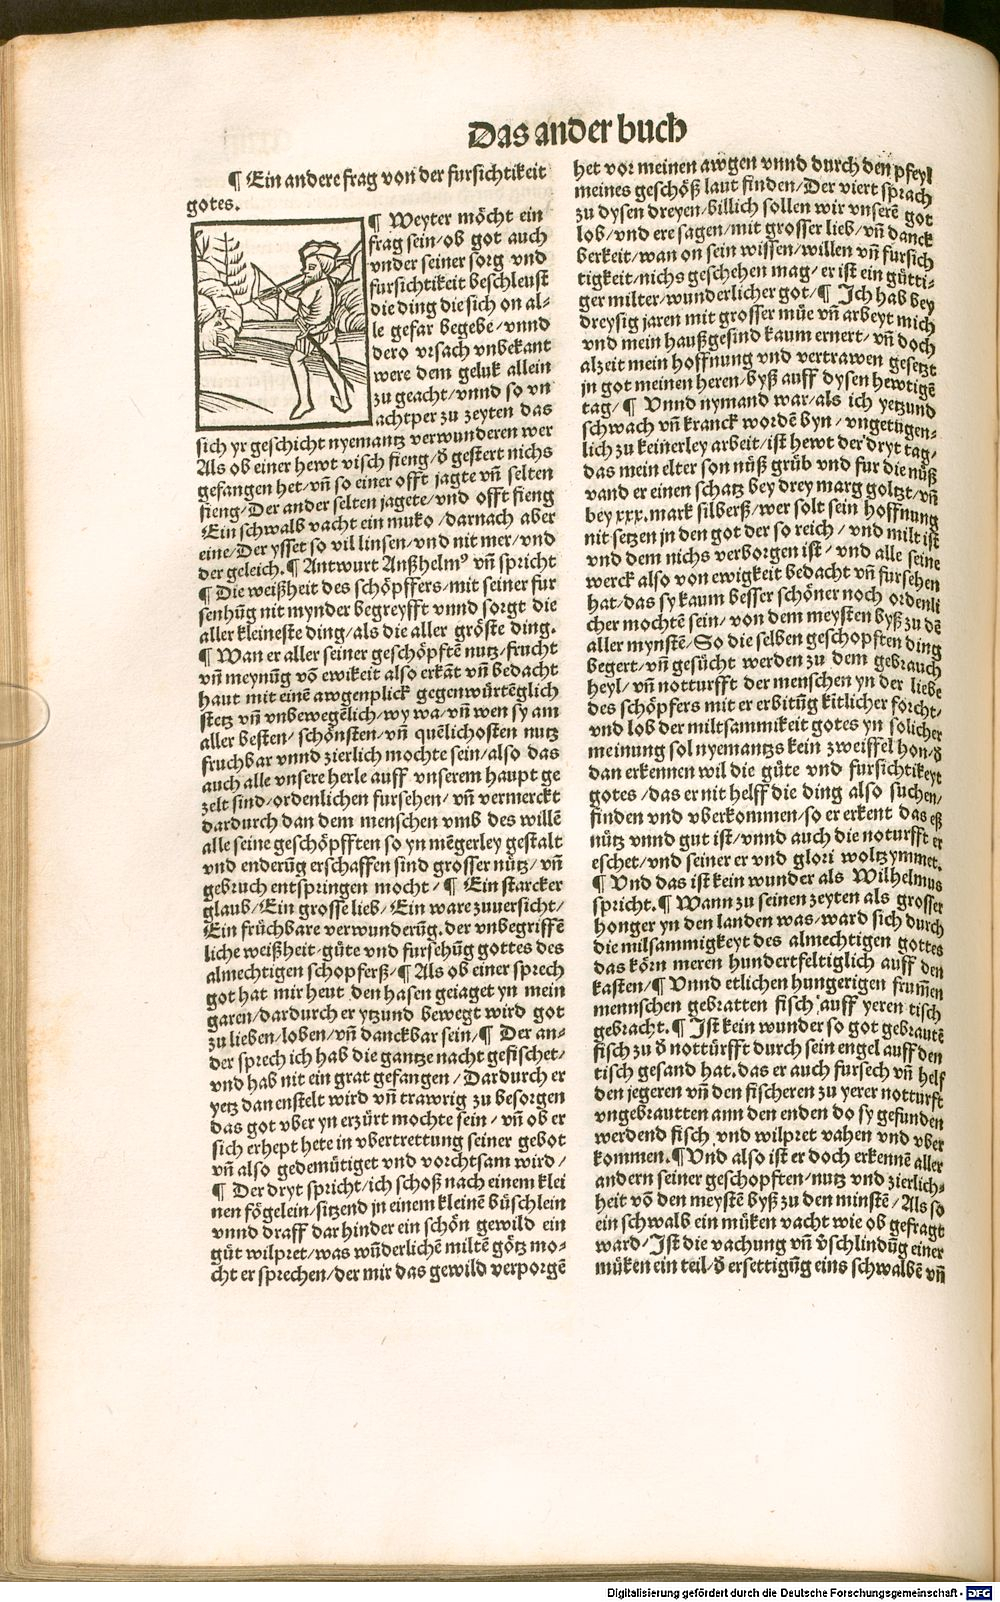 Das ander buch
¶ Ein andere frag von der fursichtikeit
gotes.
¶ Weyter möcht ein
frag sein/ob got auch
vnder seiner sorg vnd
fursichtikeit beschleust
die ding die sich on al-
le gefar begebe/vnnd
dero vrsach vnbekant
were dem geluk allein
zu geacht/vnnd so vn
achtper zu zeyten das
sich yr geschicht nyemantz verwunderen wer
Als ob einer hewt visch fieng/d̕ gestert nichs
gefangen het/vn̄ so einer offt jagte vn̄ selten
fieng/Der ander selten jagete/vnd offt fieng
Ein schwalb vacht ein muko/darnach aber
eine/Der ysset so vil linsen/vnd nit mer/vnd
der geleich.¶ Antwurt Anßhelmꝰ vn̄ spricht
¶ Die weißheit des schöpffers/mit seiner fur
senhūg nit mynder begreyfft vnnd sorgt die
aller kleineste ding/als die aller gröste ding.
¶ Wan er aller seiner geschöpftē nutz/frucht
vn̄ meynūg vō ewikeit also erkāt vn̄ bedacht
haut mit einē awgenplick gegenwürtēglich
stetz vn̄ vnbewegēlich/wy wa/vn̄ wen sy am
aller besten/schönsten/vn̄ quēlichosten nutz
fruchbar vnnd zierlich mochte sein/also das
auch alle vnsere herle auff vnserem haupt ge
zelt sind/ordenlichen fursehen/vn̄ vermerckt
dardurch dan dem menschen vmb des willē
alle seine geschöpfften so yn mēgerley gestalt
vnd enderūg erschaffen sind grosser nütz/vn̄
gebruch entspringen mocht/¶ Ein starcker
glaub/Ein grosse lieb/Ein ware zuuersicht/
Ein früchbare verwunderūg.der vnbegriffē
liche weißheit/güte vnd fursehūg gottes des
almechtigen schopferß/¶ Als ob einer sprech
got hat mir heut den hasen geiaget yn mein
garen/dardurch er ytzund bewegt wird got
zu lieben/loben/vn̄ danckbar sein/¶ Der an-
der sprech ich hab die gantze nacht gefischet/
vnd hab nit ein grat gefangen/Dardurch er
yetz dan enstelt wird vn̄ trawrig zu besorgen
das got vber yn erzürt mochte sein/vn̄ ob er
sich erhept hete in vbertrettung seiner gebot
vn̄ also gedemütiget vnd vorchtsam wird/
¶ Der dryt spricht/ich schoß nach einem klei
nen fögelein/sitzend jn einem kleinē büschlein
vnnd draff darhinder ein schön gewild ein
güt wilpret/was wūderlichē miltē götz mo-
cht er sprechen/der mir das gewild verporgē
het vor meinen awgen vnnd durch den pfeyl
meines geschöß laut finden/Der viert sprach
zu dysen dreyen/billich sollen wir vnserē got
lob/vnd ere sagen/mit grosser lieb/vn̄ danck
berkeit/wan on sein wissen/willen vn̄ fursich
tigkeit/nichs geschehen mag/er ist ein gütti-
ger milter/wunderlicher got/¶ Ich hab bey
dreysig jaren mit grosser müe vn̄ arbeyt mich
vnd mein haußgesind kaum ernert/vn̄ doch
alzeit mein hoffnung vnd vertrawen gesetzt
jn got meinen heren/byß auff dysen hewtigē
tag/¶ Vnnd nymand war/als ich yetzund
schwach vn̄ kranck wordē byn/vngetügen-
lich zu keinerley arbeit/ist hewt der dryt tag/
das mein elter son nüß grüb vnd fur die nüß
vand er einen schatz bey drey marg goltzt/vn̄
bey xxx.mark silberß/wer solt sein hoffnung
nit setzen jn den got der so reich/vnd milt ist
vnd dem nichs verborgen ist/vnd alle seine
werck also von ewigkeit bedacht vn̄ fursehen
hat/das sy kaum besser schöner noch ordenli
cher mochtē sein/von dem meysten byß zu dē
aller mynstē/So die selben geschopften ding
begert/vn̄ gesücht werden zu dem gebrauch
heyl/vn̄ notturfft der menschen yn der liebe
des schöpfers mit er erbitūg kitlicher forcht/
vnd lob der miltsammikeit gotes yn solicher
meinung sol nyemantzs kein zweiffel hon/d̕
dan erkennen wil die güte vnd fursichtikeyt
gotes/das er nit helff die ding also suchen/
finden vnd vberkommen/so er erkent das eß
nütz vnnd gut ist/vnnd auch die noturfft er
eschet/vnd seiner er vnd glori woltz ymmet.
¶ Vnd das ist kein wunder als Wilhelmus
spricht.¶ Wann zu seinen zeyten als grosser
honger yn den landen was/ward sich durch
die milsammigkeyt des almechtigen gottes
das körn meren hundertfeltiglich auff den
kasten/¶ Vnnd etlichen hungerigen frum̄en
mennschen gebratten fisch auff yeren tisch
gebracht.¶ Ist kein wunder so got gebrautē
fisch zu d̕ nottürfft durch sein engel auff den
tisch gesand hat.das er auch fursech vn̄ helf
den jegeren vn̄ den fischeren zu yerer notturft
vngebrautten ann den enden do sy gefunden
werdend fisch vnd wilpret vahen vnd vber
kommen.¶ Vnd also ist er doch erkennē aller
andern seiner geschopften/nutz vnd zierlich-
heit vō den meystē byß zu den minstē/Als so
ein schwalb ein müken vacht wie ob gefragt
ward/Ist die vachung vn̄ v̕schlindūg einer
müken ein teil/d̕ ersettigūg eins schwalbē vn̄
Digitalisierung gefördert durch die Deutsche Forschungsgemeinschaft - DFG